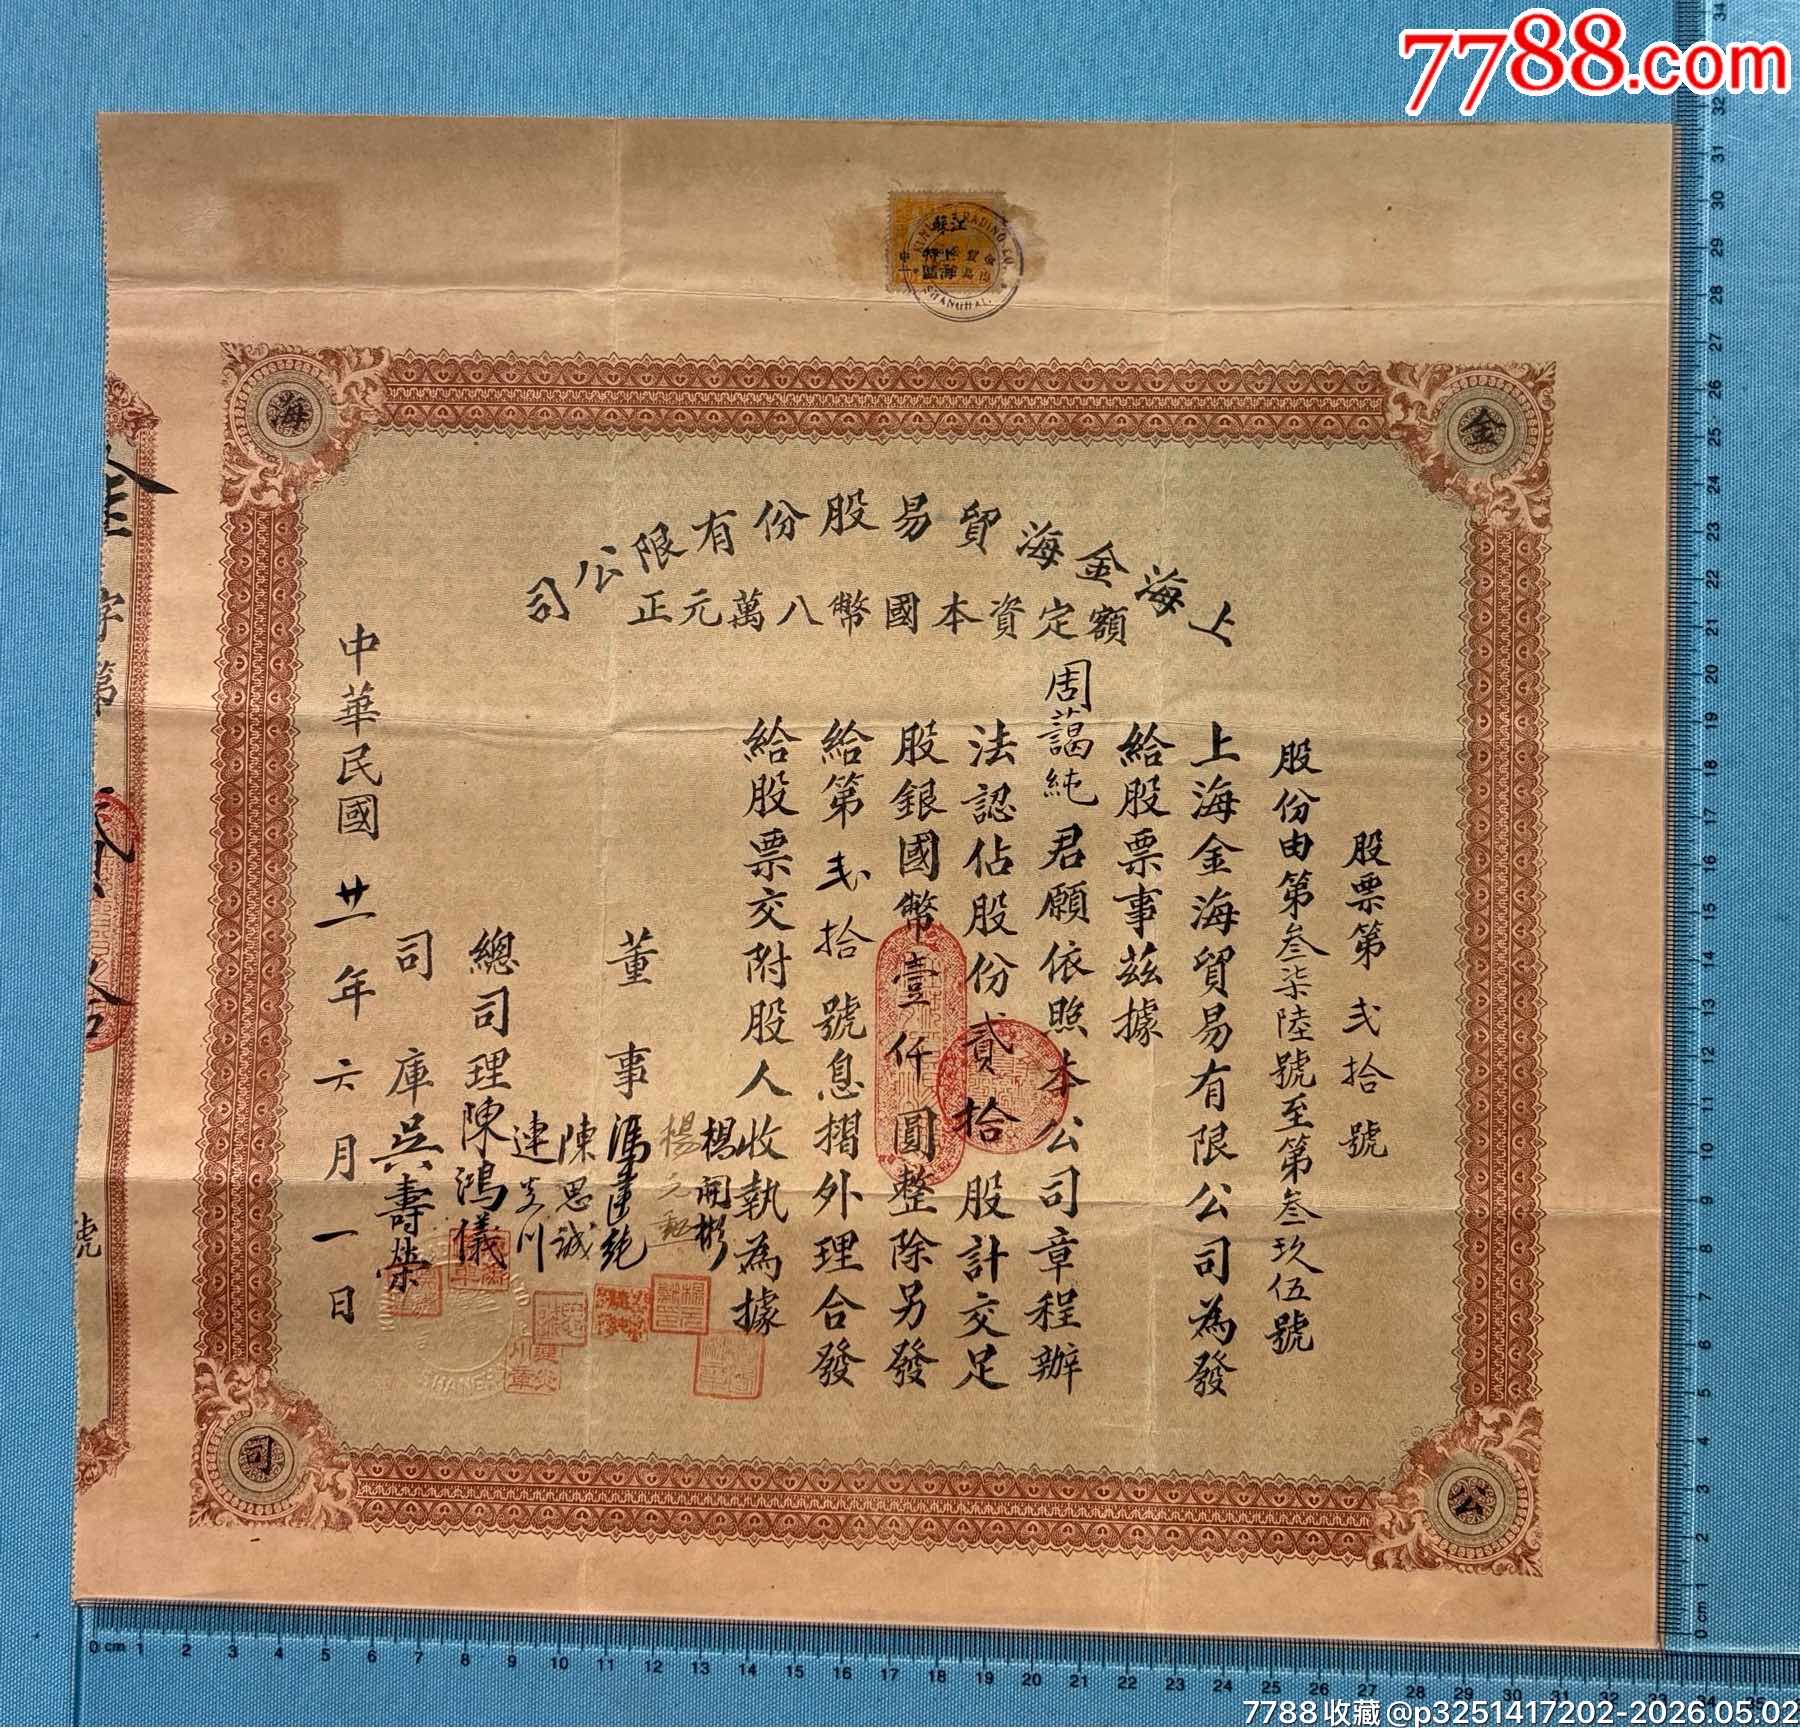 7788.com
江蘇
TRADING CO.
SHANGHAI.
金
海
公
司
上海金海貿易股份有限公司
額定資本國幣八萬元正
股票第弍拾號
股份由第叁柒陸號至第叁玖伍號
上海金海貿易有限公司為發
給股票事茲據
周藹純君願依照本公司章程辦
法認佔股份貳拾股計交足
股銀國幣壹仟圓整除另發
給第弍拾號息摺外理合發
給股票交附股人收執為據
董事
楊開彬
楊元
陳思誠
連炎川
總司理陳鴻儀
司庫吳壽榮
中華民國廿一年六月一日
字第
號
7788收藏@p3251417202-2026.05.02